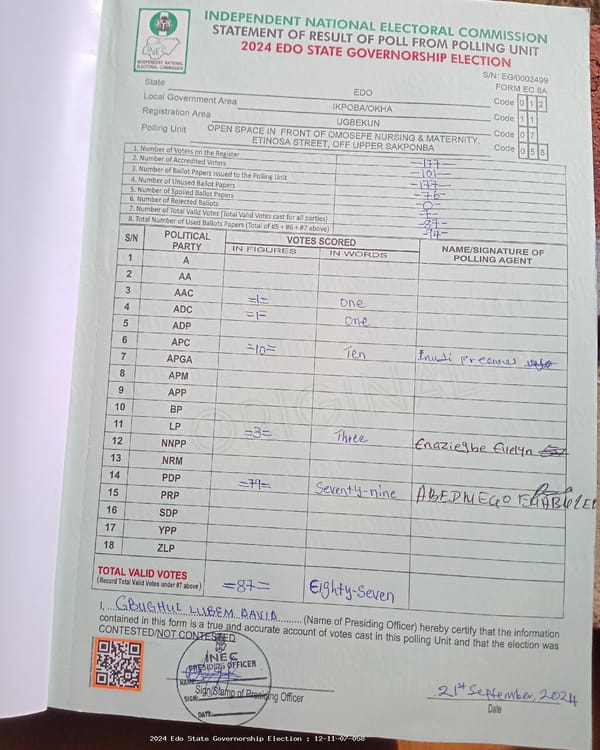 INDEPENDENT NATIONAL ELECTORAL COMMISSION
STATEMENT OF RESULT OF POLL FROM POLLING UNIT
2024 EDO STATE GOVERNORSHIP ELECTION
INEC
INDEPENDENT NATIONAL
ELECTORAL COMMISSION
S/N: EG/0002499
FORM EC 8A
State EDO Code 0 1 2
Local Government Area IKPOBA/OKHA Code 1 1
Registration Area UGBEKUN Code 0 7
Polling Unit OPEN SPACE IN FRONT OF OMOSEFE NURSING & MATERNITY, ETINOSA STREET, OFF UPPER SAKPONBA Code 0 5 8
1. Number of Voters on the Register -177-
2. Number of Accredited Voters -101-
3. Number of Ballot Papers issued to the Polling Unit -177-
4. Number of Unused Ballot Papers -76-
5. Number of Spoiled Ballot Papers -0-
6. Number of Rejected Ballots -7-
7. Number of Total Valid Votes (Total Valid Votes cast for all parties) -87-
8. Total Number of Used Ballots Papers (Total of #5 + #6 + #7 above) -94-
S/N POLITICAL PARTY VOTES SCORED NAME/SIGNATURE OF POLLING AGENT
IN FIGURES IN WORDS
1 A
2 AA
3 AAC =1= One
4 ADC =1= One
5 ADP
6 APC =10= Ten
7 APGA
8 APM
9 APP
10 BP
11 LP =3= Three Enaziegbe Evelyn
12 NNPP
13 NRM
14 PDP =79= Seventy-nine ABEDNEGO
15 PRP
16 SDP
17 YPP
18 ZLP
ORIGINAL
TOTAL VALID VOTES =87= Eighty-Seven
(Record Total Valid Votes under #7 above)
I, GBUGHUL LUBEM DAVID (Name of Presiding Officer) hereby certify that the information
contained in this form is a true and accurate account of votes cast in this polling Unit and that the election was
CONTESTED/NOT CONTESTED
INEC
PRESIDING OFFICER
NAME:
SIGN:
DATE:
Sign/Stamp of Presiding Officer
21st September, 2024
Date
2024 Edo State Governorship Election : 12-11-07-058